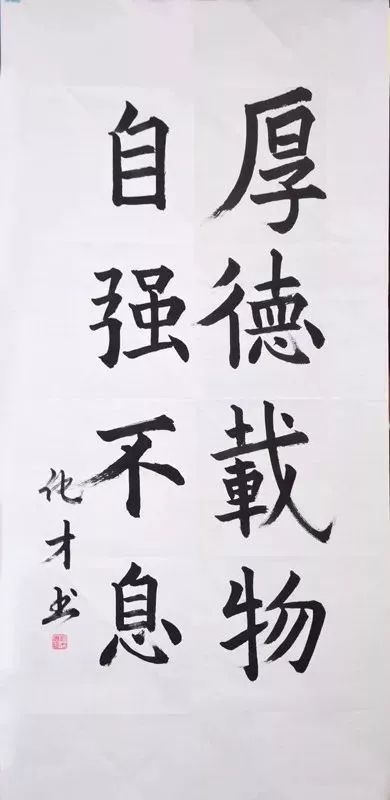 厚德載物
自强不息
化才书